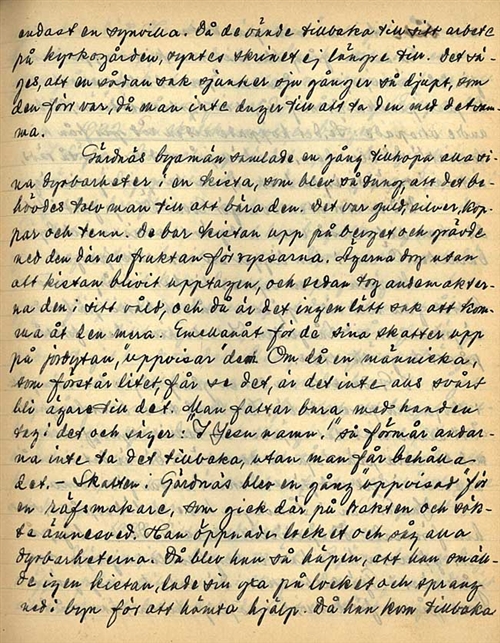 endast en synvilla. Då de vände tillbaka till sitt arbete
på kyrkogården, syntes skrinet ej längre till. Det sä-
ges, att en sådan sak sjunker sju gånger så djupt, som
den förr var, då man inte duger till att ta den med det sam-
ma.
Gärdnäs byamän samlade en gång tillhopa alla si-
na dyrbarheter i en kista, som blev så tung, att det be-
hövdes tolv man till att bära den. Det var guld, silver, kop-
par och tenn. De bar kistan upp på berget och grävde
ned den där av fruktan för ryssarna. Ägarna dog utan
att kistan blivit upptagen, och sedan tog andemakter-
na den i sitt våld, och då är det ingen lätt sak att kom-
ma åt den mera. Emellanåt för de sina skatter upp
på jordytan, "uppvisar" dem. Om då en människa,
som förstår litet, får se det, är det inte alls svårt
bli ägare till det. Man fattar bara med handen
tag i det och säger: "I Jesu namn!" så förmår andar-
na inte ta det tillbaka, utan man får behålla
det. – Skatten i Gärdnäs blev en gång "uppvisad" för
en räfsmakare, som gick där på trakten och sök-
te ämnesved. Han öppnade locket och såg alla
dyrbarheterna. Då blev han så häpen, att han smäll-
de igen kistan, lade sin yxa på locket och sprang
ned i byn för att hämta hjälp. Då han kom tillbaka